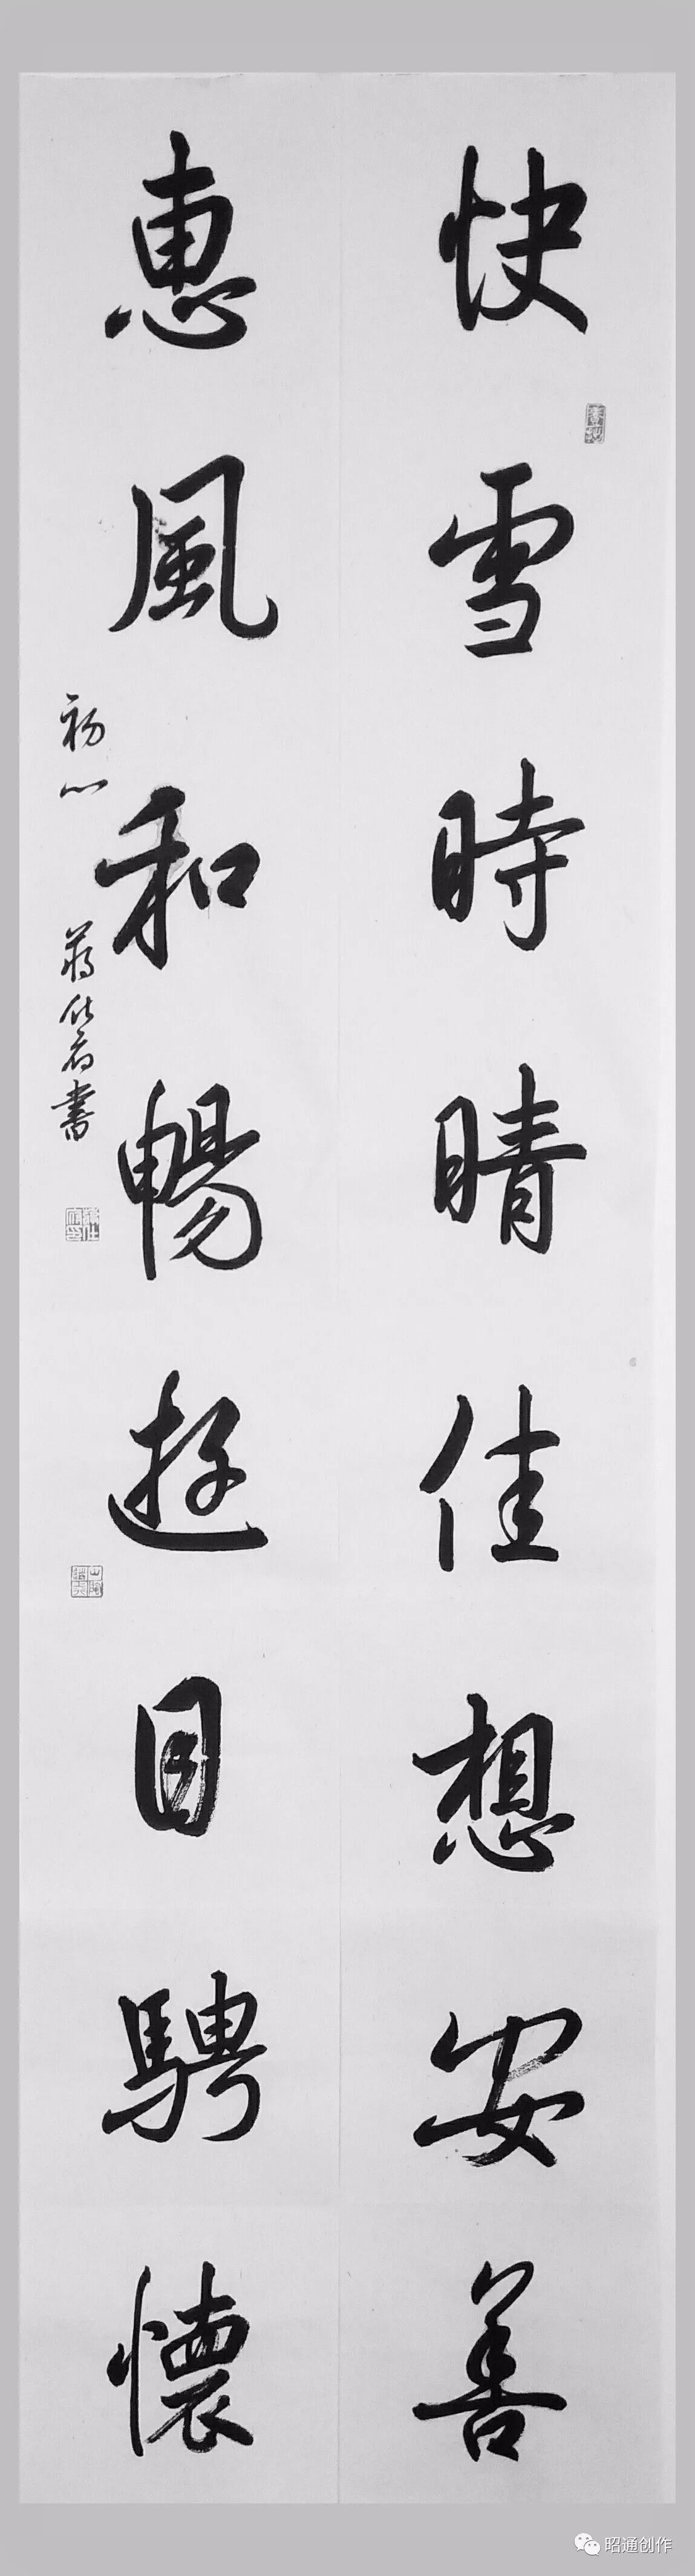 快雪時晴佳想安善
惠風和暢遊目騁懷
初心
蔣仕府書
昭通创作